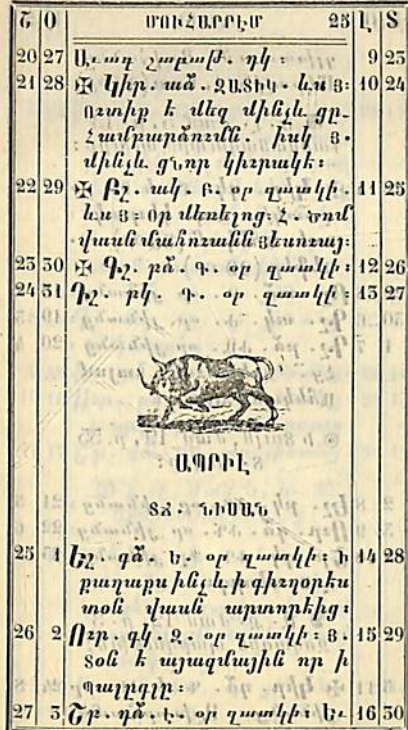 Շ Օ ՄՈՒՀԱՐՐԷՄ 25 Լ Տ
20 27 Աւագ շաբաթ. դկ։ 9 23
21 28 ✠ Կիր. ած. ԶԱՏԻԿ. ևս Յ։ 10 24
Ուտիք է մեզ մինչև ցը֊
Համբարձումն. իսկ Յ.
մինչև ցնոր կիւրակէ։
22 29 ✠ Բշ. ակ. Բ. օր զատկի. 11 25
ևս Յ։ Օր մեռելոց։ Հ. Ծոմ
վասն մահուանն Յեսուայ։
23 30 ✠ Գշ. բձ. Գ. օր զատկի։ 12 26
24 31 Դշ. բկ. Դ. օր զատկի։ 13 27
ԱՊՐԻԼ
ՏՃ. ՆԻՍԱՆ
25 1 Եշ. գձ. Ե. օր զատկի։ Ի 14 28
քաղաքս ինչև ի գիւղօրէս
տօն վասն արտորէից։
26 2 Ուր. գկ. Զ. օր զատկի։ Յ. 15 29
Տօն է այազմային որ ի
Պալըգլը։
27 3 Շր. դձ. Է. օր զատկի։ Եւ 16 30